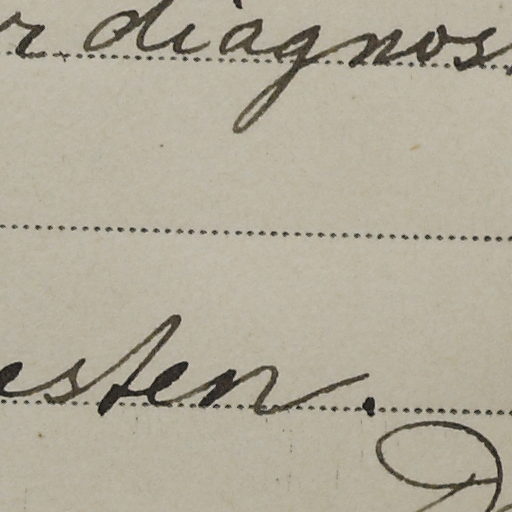 r diagnos
esten.